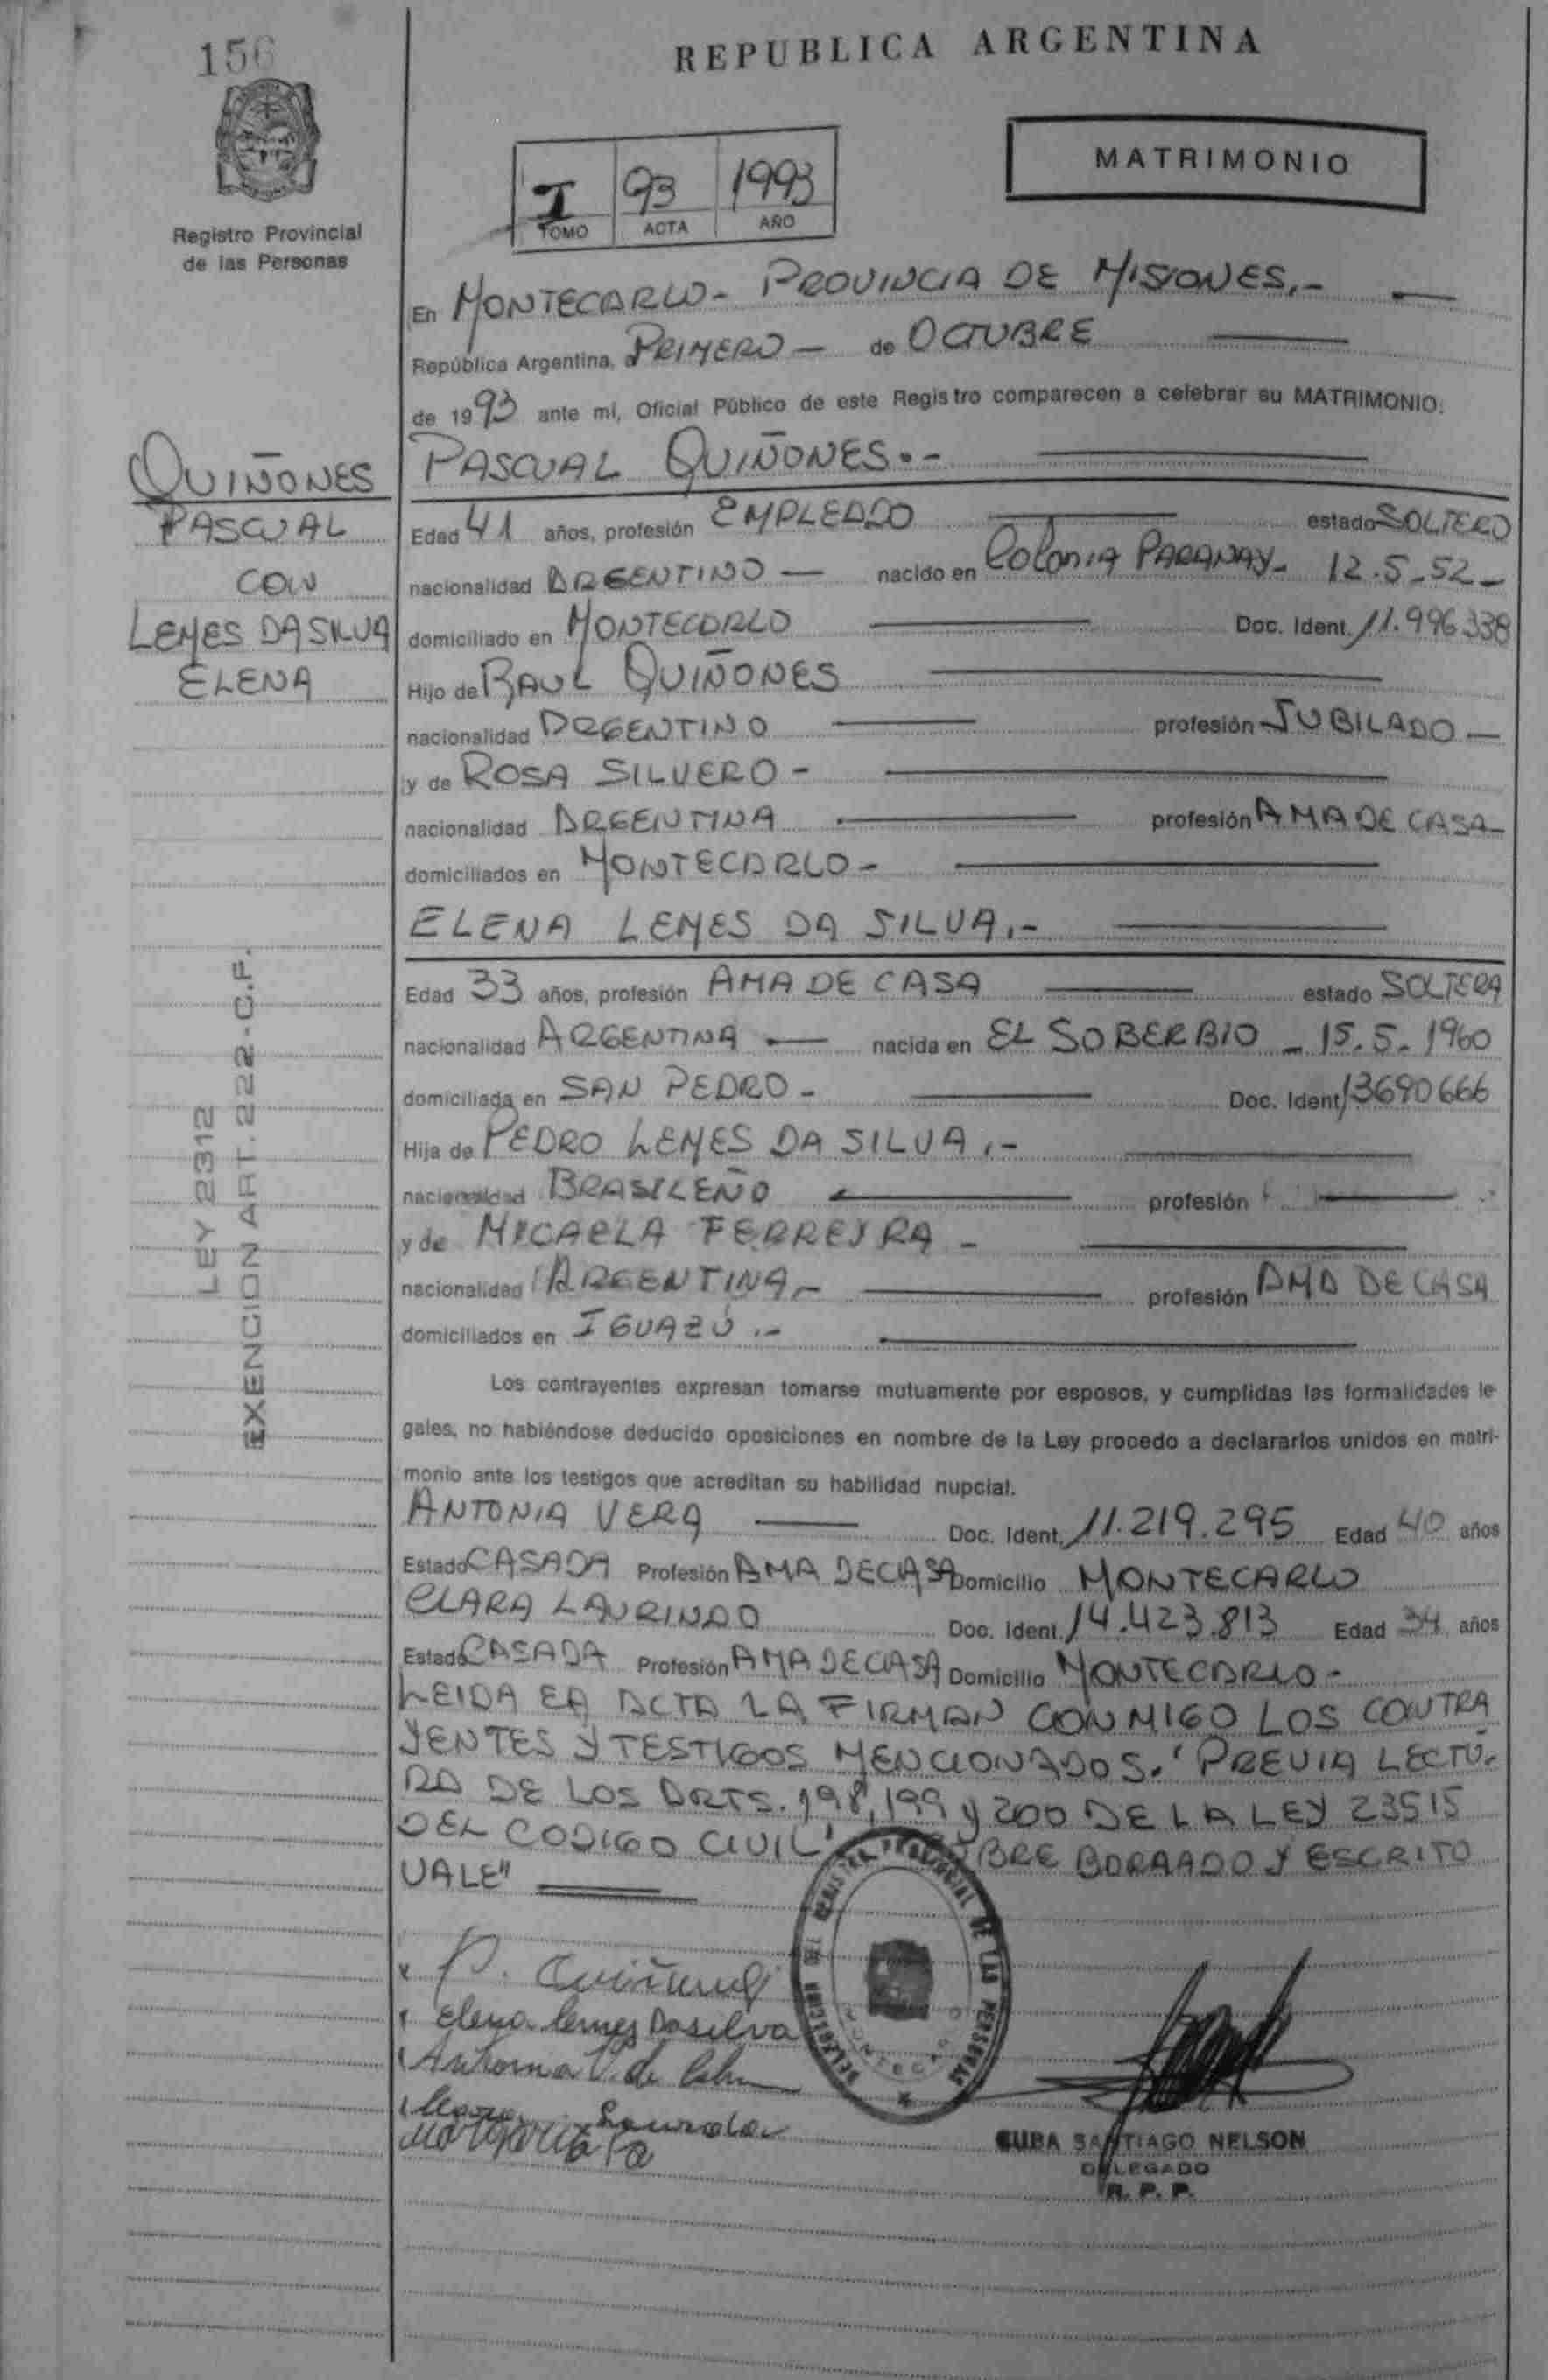 156
REPUBLICA ARGENTINA
MATRIMONIO
I 93 1993
TOMO ACTA AÑO
Registro Provincial
de las Personas
En MONTECARLO - PROVINCIA DE MISIONES.-
República Argentina, a PRIMERO — de OCTUBRE
de 1993 ante mí, Oficial Público de este Registro comparecen a celebrar su MATRIMONIO:
QUIÑONES
PASCUAL
CON
LEMES DA SILVA
ELENA
PASCUAL QUIÑONES.-
Edad 41 años, profesión EMPLEADO estado SOLTERO
nacionalidad ARGENTINO — nacido en Colonia PARANAY - 12.5.52 -
domiciliado en MONTECARLO Doc. Ident. 11.996338
Hijo de RAUL QUIÑONES
nacionalidad ARGENTINO profesión JUBILADO —
y de ROSA SILVERO -
nacionalidad ARGENTINA profesión AMA DE CASA -
domiciliados en MONTECARLO -
ELENA LEMES DA SILVA.-
Edad 33 años, profesión AMA DE CASA estado SOLTERA
nacionalidad ARGENTINA — nacida en EL SOBERBIO - 15.5.1960
domiciliada en SAN PEDRO - Doc. Ident. 13690666
Hija de PEDRO LEMES DA SILVA.-
nacionalidad BRASILEÑO profesión
y de MICAELA FERREYRA -
nacionalidad ARGENTINA.- profesión AMA DE CASA
domiciliados en IGUAZÚ.-
LEY 2312
EXENCION ART. 222-C.F.
Los contrayentes expresan tomarse mutuamente por esposos, y cumplidas las formalidades le-
gales, no habiéndose deducido oposiciones en nombre de la Ley procedo a declararlos unidos en matri-
monio ante los testigos que acreditan su habilidad nupcial.
ANTONIA VERA Doc. Ident. 11.219.295 Edad 40 años
Estado CASADA Profesión AMA DE CASA Domicilio MONTECARLO
CLARA LAURINDO Doc. Ident. 14.423.813 Edad 34 años
Estado CASADA Profesión AMA DE CASA Domicilio MONTECARLO -
LEIDA EL ACTA LA FIRMAN CONMIGO LOS CONTRA
YENTES Y TESTIGOS MENCIONADOS. "PREVIA LECTU-
RA DE LOS ARTS. 198, 199 y 200 DE LA LEY 23515
DEL CODIGO CIVIL" SOBRE BORRADO Y ESCRITO
VALE"
REGISTRO PROVINCIAL DE LAS PERSONAS
DELEGACION
MONTECARLO
P. Quiñones
Elena lemes Dasilva
Antonia V. de
CUBA SANTIAGO NELSON
DELEGADO
R. P. P.